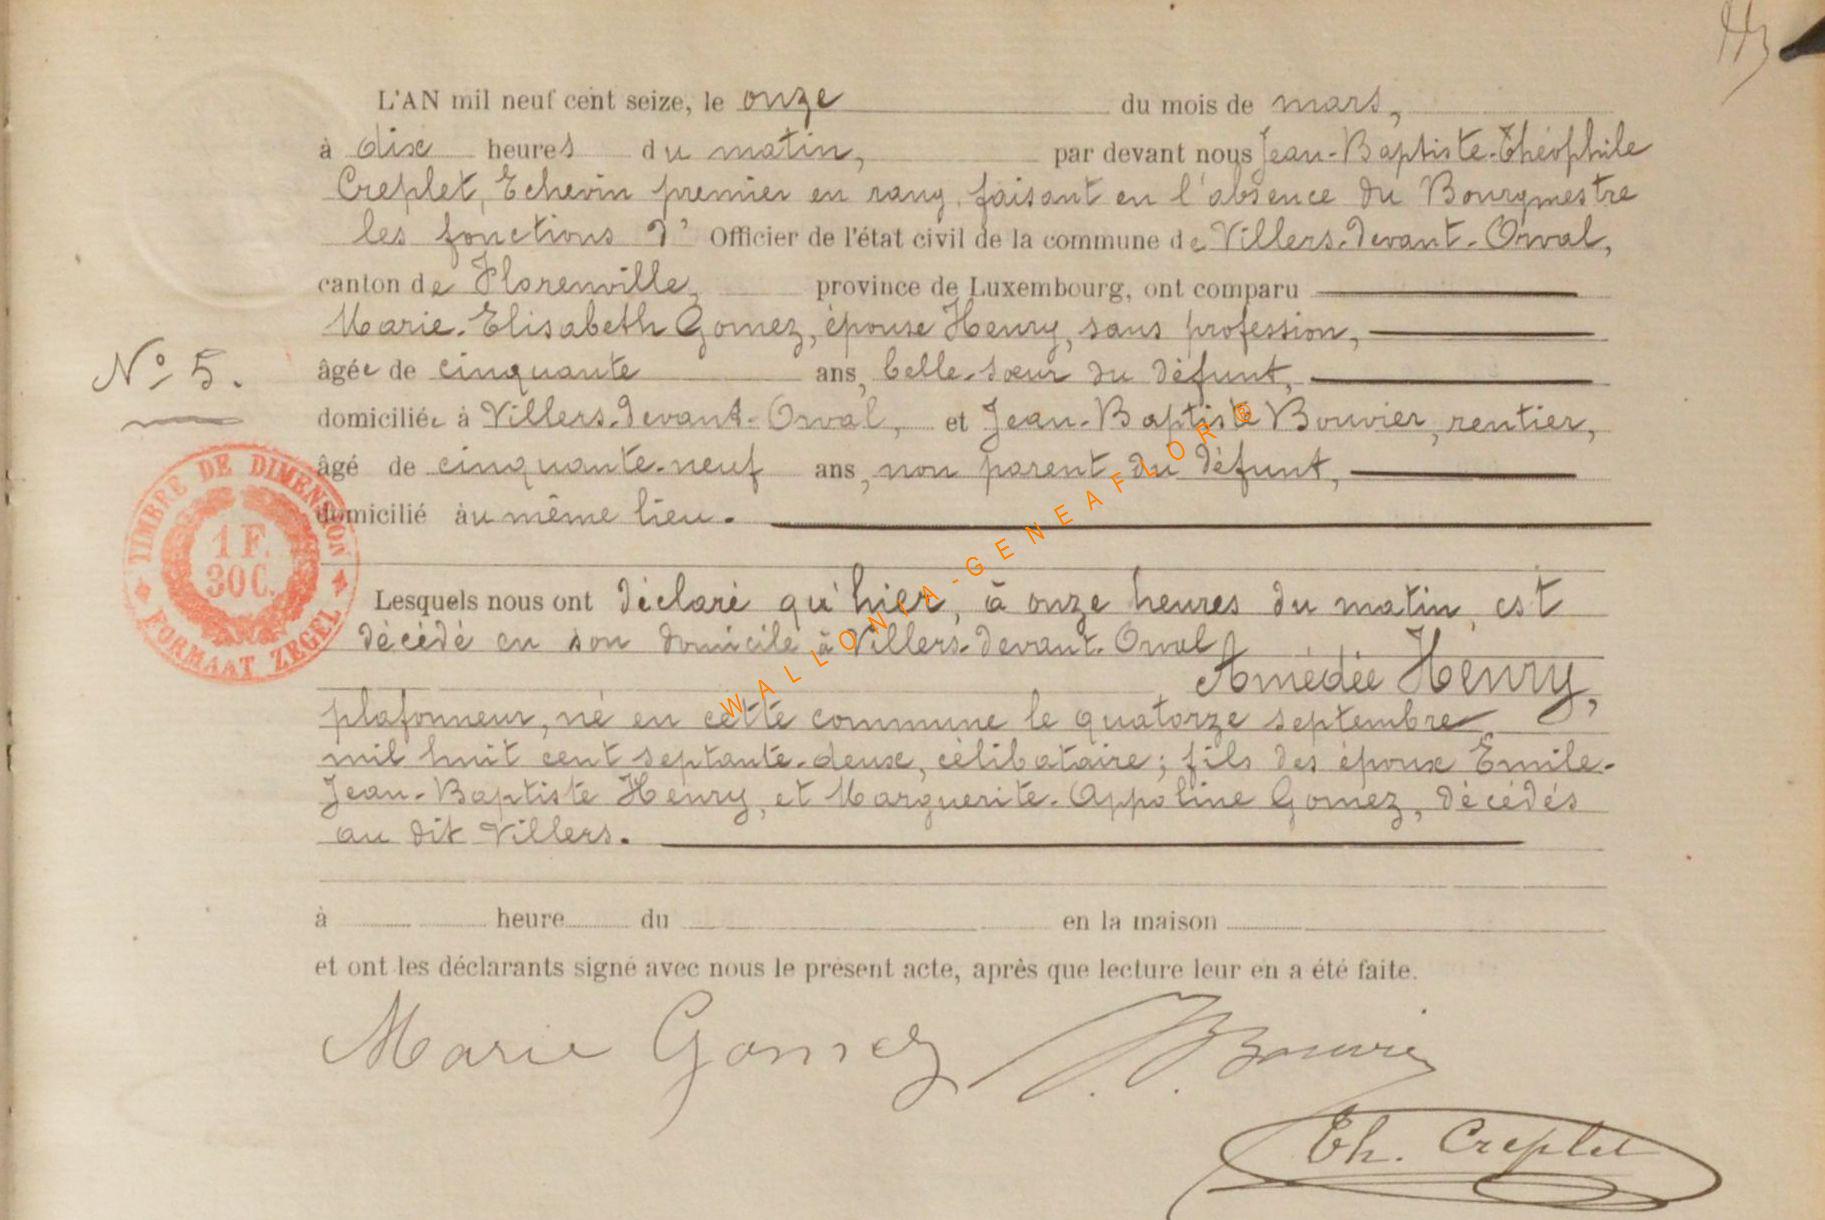 L'AN mil neuf cent seize, le onze du mois de mars,
à dix heures du matin, par devant nous Jean-Baptiste-Théophile
Creplet, Echevin premier en rang, faisant en l'absence du Bourgmestre
les fonctions d' Officier de l'état civil de la commune de Villers-devant-Orval,
canton de Florenville, province de Luxembourg, ont comparu
Marie-Elisabeth Gomez, épouse Henry, sans profession,
N° 5.
âgée de cinquante ans, belle-sœur du défunt,
domiciliée à Villers-devant-Orval, et Jean-Baptiste Bouvier, rentier,
âgé de cinquante-neuf ans, non parent du défunt,
domicilié au même lieu.
TIMBRE DE DIMENSION
1 F.
30 C.
FORMAAT ZEGEL
Lesquels nous ont déclaré qu'hier, à onze heures du matin, est
décédé en son domicile à Villers-devant-Orval
Amédée Henry,
plafonneur, né en cette commune le quatorze septembre
mil huit cent septante-deux, célibataire; fils des époux Emile-
Jean-Baptiste Henry, et Marguerite-Appoline Gomez, décédés
au dit Villers.
à heure du en la maison
et ont les déclarants signé avec nous le présent acte, après que lecture leur en a été faite.
Marie Gomez J. B. Bouvier
Th. Creplet
WALLONIA-GENEAFLOR®